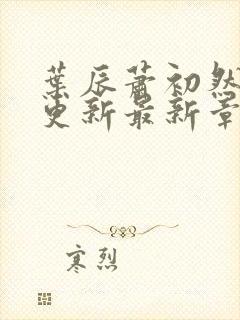 葉辰蕭初然
更新最新章
寒烈